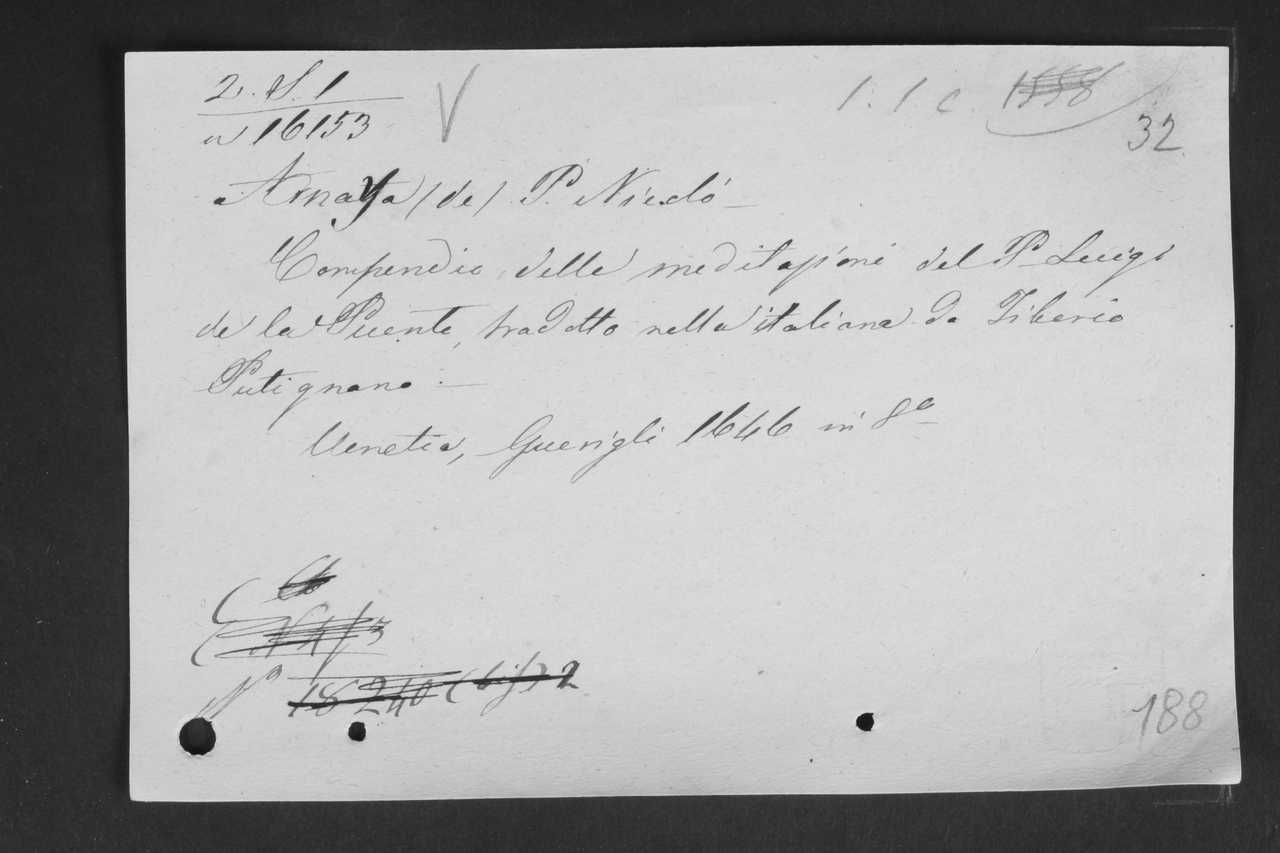 2. S. 1 V 1. 1 c. 1558
a 16153 32
Amaya (de) P. Nicolò
Compendio delle meditazioni del P. Luigi
de la Puente, tradotto nella italiana da Tiberio
Putignano.
Venetia, Guerigli 1646 in 8º
N.º 18240 (bis) 2
188